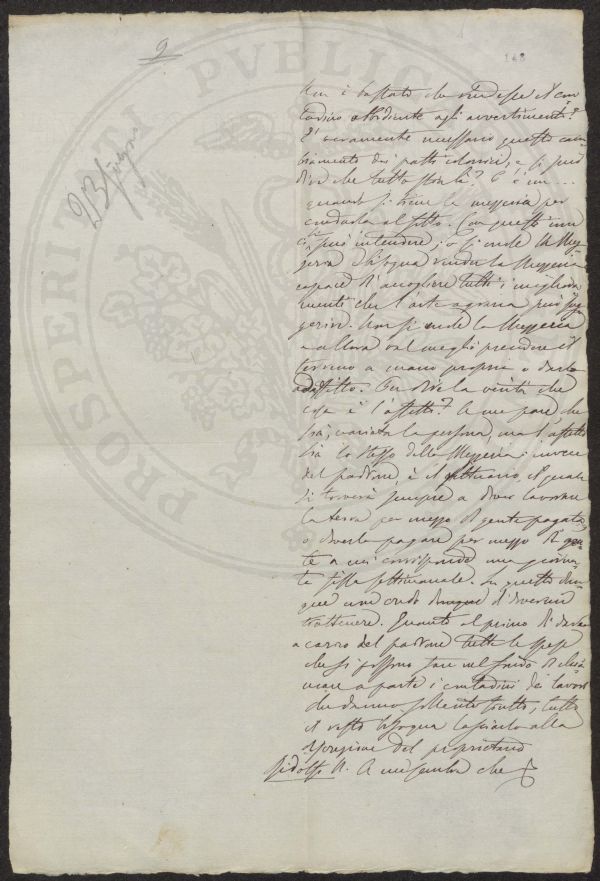 9
148
23 Giugno
PROSPERITATI PVBLICAE
Non è bastato che rendesse il con
tadino obbediente agli avvertimenti?
E' veramente necessario questo cam
biamento dei patti colonici, e si può
dire che tutto stia lì? C'è un...
quando si tiene la mezzeria per
condurla al fitto. Con questo non
si può intendere; o si vuole la Mez
zeria e bisogna render la Mezzeria
capace di accogliere tutti i migliora
menti che l'arte agraria può sug
gerire. Non si vuole la Mezzeria
e allora val meglio prendere il
terreno a mano propria o darlo
ad affitto. Per dire la verità che
cosa è l'affitto? A me pare che
sia, variata la persona, ma l'affitto
sia lo stesso della Mezzeria: invece
del padrone, è il fittuario il quale
si troverà sempre a dover lavorare
la terra per mezzo di gente pagata,
o doverla pagare per mezzo di gen
te a cui corrisponde una giorna
ta fissa settimanale. In questo dun
que non credo di dovermi
trattenere. Quanto al primo di dare
a carico del padrone tutte le spese
che si possono fare nel fondo di chia
mare a parte i contadini dei lavori
che danno sollecito frutto, tutto
il resto bisogna lasciarlo alla
discrezione del proprietario
Ridolfi A. A me sembra che